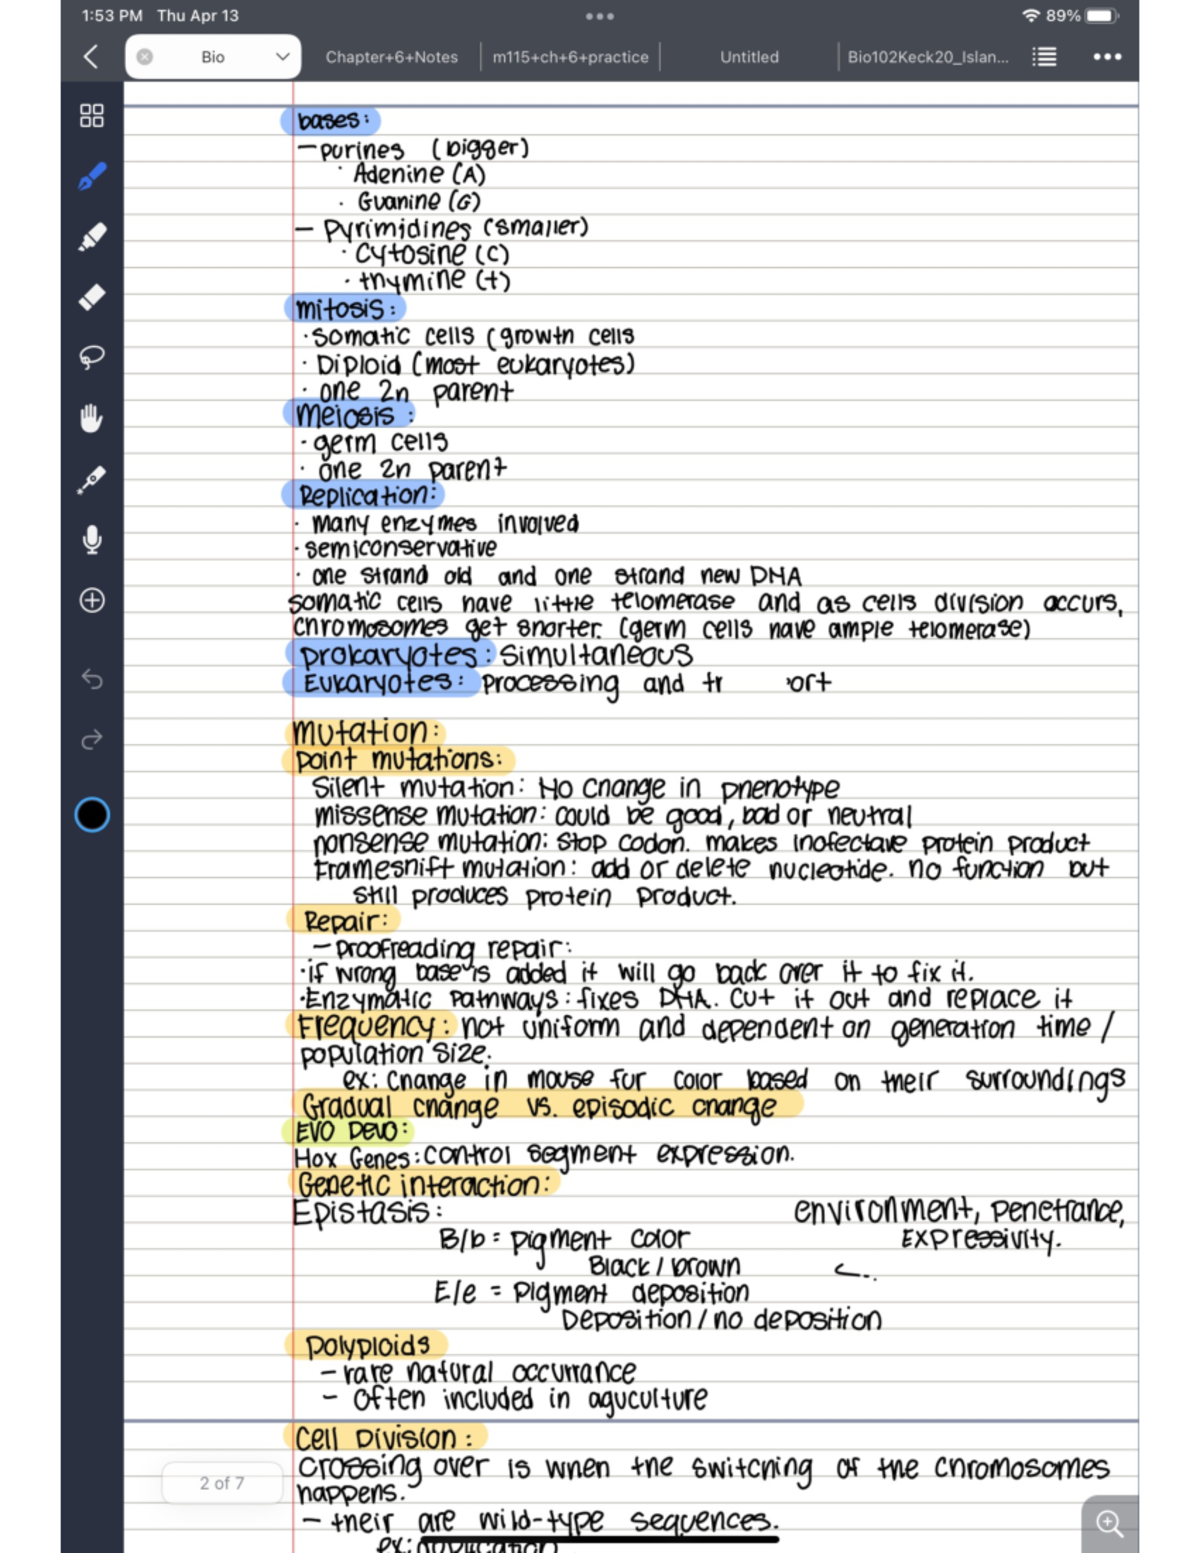 1:53 PM Thu Apr 13
89%
Bio
Chapter+6+Notes
m115+ch+6+practice
Untitled
Bio102Keck20_Islan...
bases:
- purines (bigger)
· Adenine (A)
· Guanine (G)
- Pyrimidines (smaller)
· Cytosine (C)
· thymine (t)
mitosis:
· somatic cells (growth cells
· Diploid (most eukaryotes)
· one 2n parent
Meiosis:
· germ cells
· one 2n parent
Replication:
· many enzymes involved
· semiconservative
· one strand old and one strand new DNA
somatic cells have little telomerase and as cells division accurs,
chromosomes get shorter. (germ cells have ample telomerase)
prokaryotes: Simultaneous
Eukaryotes: Processing and tr ort
mutation:
point mutations:
Silent mutation: No change in phenotype
missense mutation: could be good, bad or neutral
nonsense mutation: stop codon. makes inofectave protein product
Frameshift mutation: add or delete nucleotide. no function but
still produces protein product.
Repair:
- Proofreading repair:
· if wrong base is added it will go back over it to fix it.
· Enzymatic Pathways: fixes DNA. Cut it out and replace it
Frequency: not uniform and dependent on generation time /
population size.
ex: change in mouse fur color based on their surroundings
Gradual change vs. episodic change
EVO DEVO:
Hox Genes: control segment expression.
Genetic interaction:
Epistasis: environment, penetrance,
B/b = pigment color Expressivity.
Black / brown
E/e = Pigment deposition
Deposition / no deposition
polyploids
- rare natural occurrance
- Often included in aguculture
Cell Division:
crossing over is when the switching of the chromosomes
happens.
- their are wild-type sequences.
ex: duplication
2 of 7